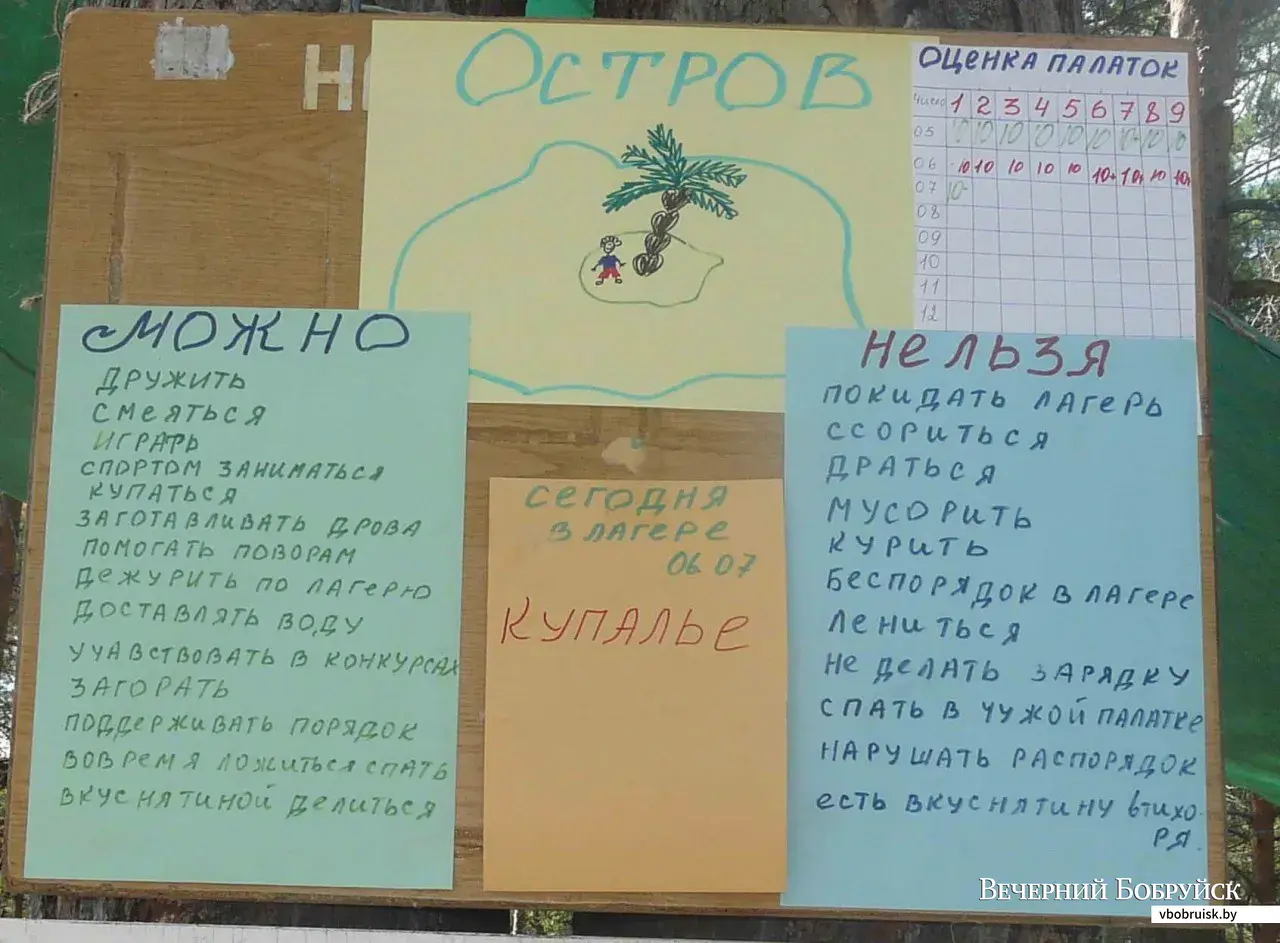 Н
ОСТРОВ
ОЦЕНКА ПАЛАТОК
число 1 2 3 4 5 6 7 8 9
05 10 10 10 10 10 10 10 10
06 10 10 10 10 10 10+ 10+ 10 10+
07 10-
08
09
10
11
12
МОЖНО
ДРУЖИТЬ
СМЕЯТЬСЯ
ИГРАТЬ
СПОРТОМ ЗАНИМАТЬСЯ
КУПАТЬСЯ
ЗАГОТАВЛИВАТЬ ДРОВА
ПОМОГАТЬ ПОВОРАМ
ДЕЖУРИТЬ ПО ЛАГЕРЮ
ДОСТАВЛЯТЬ ВОДУ
УЧАВСТВОВАТЬ В КОНКУРСАХ
ЗАГОРАТЬ
ПОДДЕРЖИВАТЬ ПОРЯДОК
ВОВРЕМЯ ЛОЖИТЬСЯ СПАТЬ
ВКУСНЯТИНОЙ ДЕЛИТЬСЯ
СЕГОДНЯ
В ЛАГЕРЕ
06 07
КУПАЛЬЕ
НЕЛЬЗЯ
ПОКИДАТЬ ЛАГЕРЬ
ССОРИТЬСЯ
ДРАТЬСЯ
МУСОРИТЬ
КУРИТЬ
БЕСПОРЯДОК В ЛАГЕРЕ
ЛЕНИТЬСЯ
НЕ ДЕЛАТЬ ЗАРЯДКУ
СПАТЬ В ЧУЖОЙ ПАЛАТКЕ
НАРУШАТЬ РАСПОРЯДОК
ЕСТЬ ВКУСНЯТИНУ ВТИХО-
РЯ.
ВЕЧЕРНИЙ БОБРУЙСК
vbobruisk.by